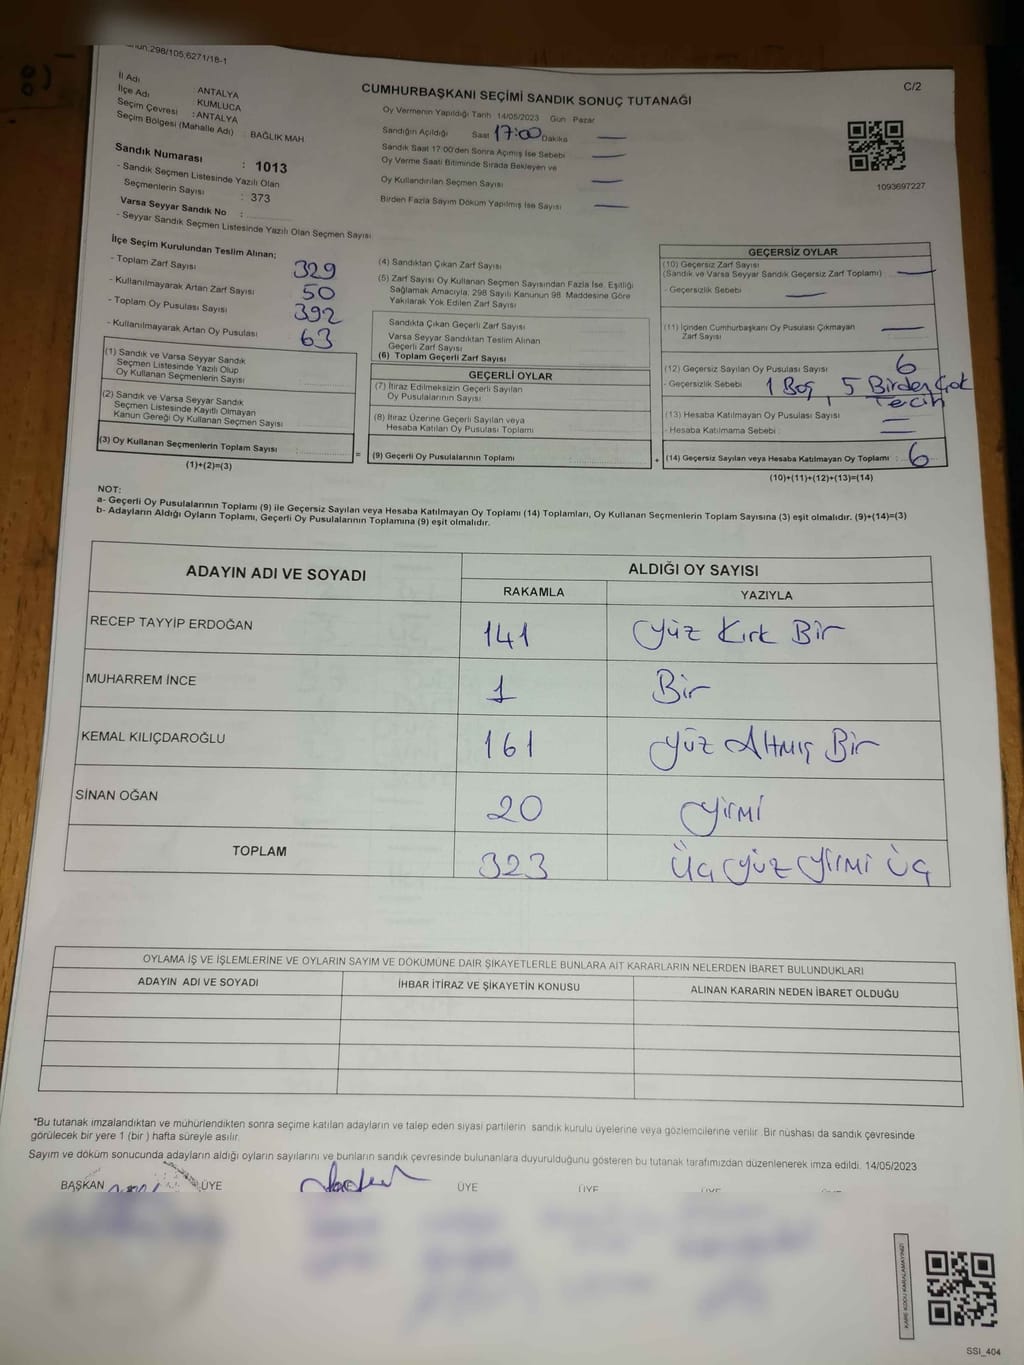 298/105,6271/18-1
İl Adı ANTALYA
İlçe Adı KUMLUCA
Seçim Çevresi : ANTALYA
Seçim Bölgesi (Mahalle Adı) : BAĞLIK MAH
Sandık Numarası : 1013
- Sandık Seçmen Listesinde Yazılı Olan
Seçmenlerin Sayısı : 373
Varsa Seyyar Sandık No :
- Seyyar Sandık Seçmen Listesinde Yazılı Olan Seçmen Sayısı
CUMHURBAŞKANI SEÇİMİ SANDIK SONUÇ TUTANAĞI
Oy Vermenin Yapıldığı Tarih 14/05/2023 Gün Pazar
Sandığın Açıldığı Saat 17:00 Dakika —
Sandık Saat 17:00'den Sonra Açımış İse Sebebi —
Oy Verme Saati Bitiminde Sırada Bekleyen ve
Oy Kullandırılan Seçmen Sayısı —
Birden Fazla Sayım Döküm Yapılmış İse Sayısı —
C/2
1093697227
İlçe Seçim Kurulundan Teslim Alınan;
- Toplam Zarf Sayısı 329
- Kullanılmayarak Artan Zarf Sayısı 50
- Toplam Oy Pusulası Sayısı 392
- Kullanılmayarak Artan Oy Pusulası 63
(1) Sandık ve Varsa Seyyar Sandık
Seçmen Listesinde Yazılı Olup
Oy Kullanan Seçmenlerin Sayısı
(2) Sandık ve Varsa Seyyar Sandık
Seçmen Listesinde Kayıtlı Olmayan
Kanun Gereği Oy Kullanan Seçmen Sayısı
(3) Oy Kullanan Seçmenlerin Toplam Sayısı :
(1)+(2)=(3)
=
(4) Sandıktan Çıkan Zarf Sayısı
(5) Zarf Sayısı Oy Kullanan Seçmen Sayısından Fazla İse, Eşitliği
Sağlamak Amacıyla, 298 Sayılı Kanunun 98. Maddesine Göre
Yakılarak Yok Edilen Zarf Sayısı
Sandıkta Çıkan Geçerli Zarf Sayısı
Varsa Seyyar Sandıktan Teslim Alınan
Geçerli Zarf Sayısı
(6) Toplam Geçerli Zarf Sayısı
GEÇERLİ OYLAR
(7) İtiraz Edilmeksizin Geçerli Sayılan
Oy Pusulalarının Sayısı
(8) İtiraz Üzerine Geçerli Sayılan veya
Hesaba Katılan Oy Pusulası Toplamı
(9) Geçerli Oy Pusulalarının Toplamı
+
GEÇERSİZ OYLAR
(10) Geçersiz Zarf Sayısı
(Sandık ve Varsa Seyyar Sandık Geçersiz Zarf Toplamı) —
- Geçersizlik Sebebi —
(11) İçinden Cumhurbaşkanı Oy Pusulası Çıkmayan
Zarf Sayısı —
(12) Geçersiz Sayılan Oy Pusulası Sayısı 6
- Geçersizlik Sebebi 1 Boş, 5 Birden Çok
Tecih
(13) Hesaba Katılmayan Oy Pusulası Sayısı —
- Hesaba Katılmama Sebebi : —
(14) Geçersiz Sayılan veya Hesaba Katılmayan Oy Toplamı : 6
(10)+(11)+(12)+(13)=(14)
NOT:
a- Geçerli Oy Pusulalarının Toplamı (9) ile Geçersiz Sayılan veya Hesaba Katılmayan Oy Toplamı (14) Toplamları, Oy Kullanan Seçmenlerin Toplam Sayısına (3) eşit olmalıdır. (9)+(14)=(3)
b- Adayların Aldığı Oyların Toplamı, Geçerli Oy Pusulalarının Toplamına (9) eşit olmalıdır.
ADAYIN ADI VE SOYADI ALDIĞI OY SAYISI
RAKAMLA YAZIYLA
RECEP TAYYİP ERDOĞAN 141 Yüz Kırk Bir
MUHARREM İNCE 1 Bir
KEMAL KILIÇDAROĞLU 161 Yüz Altmış Bir
SİNAN OĞAN 20 Yirmi
TOPLAM 323 Üç Yüz Yirmi Üç
OYLAMA İŞ VE İŞLEMLERİNE VE OYLARIN SAYIM VE DÖKÜMÜNE DAİR ŞİKAYETLERLE BUNLARA AİT KARARLARIN NELERDEN İBARET BULUNDUKLARI
ADAYIN ADI VE SOYADI İHBAR İTİRAZ VE ŞİKAYETİN KONUSU ALINAN KARARIN NEDEN İBARET OLDUĞU
*Bu tutanak imzalandıktan ve mühürlendikten sonra seçime katılan adayların ve talep eden siyasi partilerin sandık kurulu üyelerine veya gözlemcilerine verilir. Bir nüshası da sandık çevresinde
görülecek bir yere 1 (bir ) hafta süreyle asılır.
Sayım ve döküm sonucunda adayların aldığı oyların sayılarını ve bunların sandık çevresinde bulunanlara duyurulduğunu gösteren bu tutanak tarafımızdan düzenlenerek imza edildi. 14/05/2023
BAŞKAN ÜYE ÜYE ÜYE
KARE KODU KARALAMAYINIZ!
SSİ_404